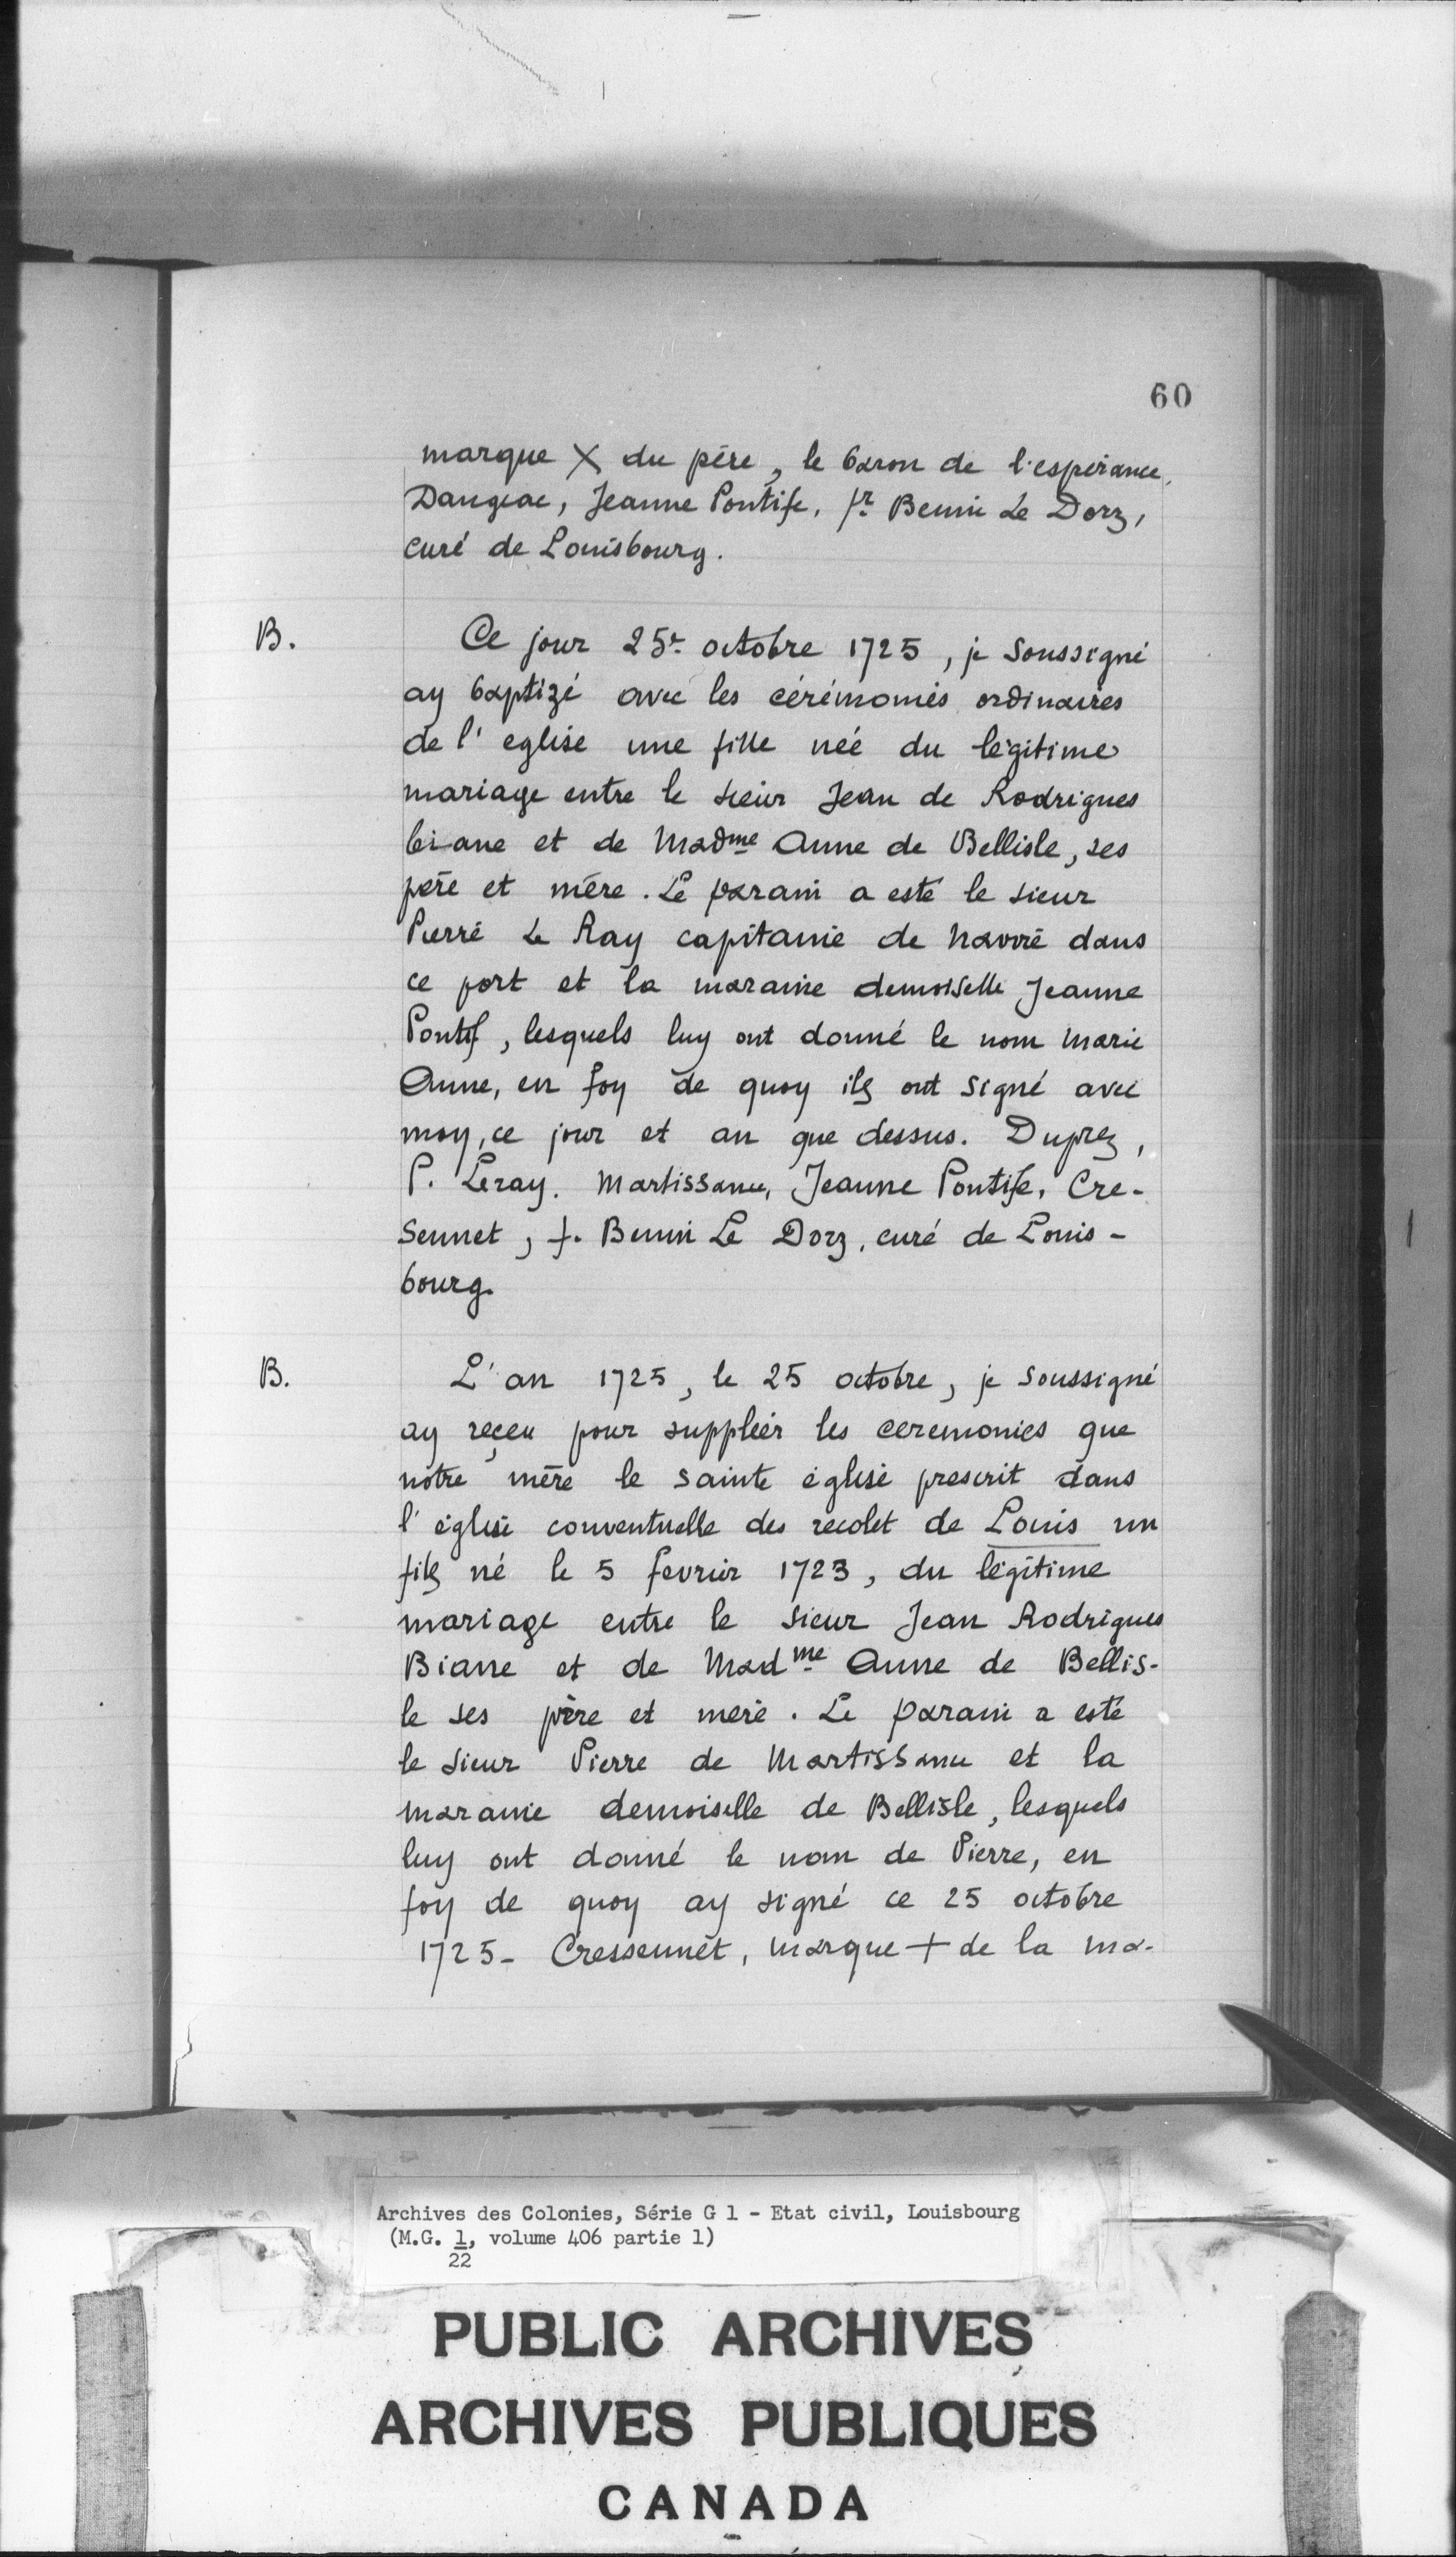 60
marque X du père, le baron de l'espérance,
Dangeac, Jeanne Pontife, fr. Benin Le Dorz,
curé de Louisbourg.
B.
Ce jour 25r. octobre 1725, je soussigné
ay baptizé avec les cérémonies ordinaires
de l'eglise une fille née du légitime
mariage entre le sieur Jean de Rodrigues
biane et de Madme Anne de Bellisle, ses
père et mère. Le parain a esté le sieur
Pierre Le Ray capitaine de navire dans
ce port et la maraine demoiselle Jeanne
Pontif, lesquels luy ont donné le nom Marie
Anne, en foy de quoy ils ont signé avec
moy, ce jour et an que dessus. Duprez,
P. Leray. Martissance, Jeanne Pontife, Cre-
sennet, f. Benin Le Dorz, curé de Louis-
bourg.
B.
L'an 1725, le 25 octobre, je soussigné
ay reçeu pour suppléer les ceremonies que
notre mère le sainte église prescrit dans
l'église conventuelle des recolet de Louis un
fils né le 5 fevrier 1723, du légitime
mariage entre le sieur Jean Rodrigues
Biane et de Madme Anne de Bellis-
le ses père et mere. Le parain a esté
le sieur Pierre de Martissance et la
maraine demoiselle de Bellisle, lesquels
luy ont donné le nom de Pierre, en
foy de quoy ay signé ce 25 octobre
1725- Cressennet, marque + de la ma-
Archives des Colonies, Série G 1 - Etat civil, Louisbourg
(M.G. 1, volume 406 partie 1)
22
PUBLIC ARCHIVES
ARCHIVES PUBLIQUES
CANADA